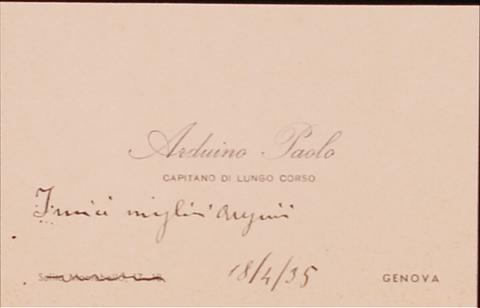 Arduino Paolo
CAPITANO DI LUNGO CORSO
I miei migliori auguri
18/4/35
GENOVA